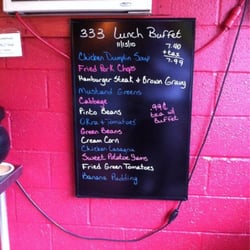 333 Lunch Buffet
11/15/10
7.40
+tax
7.99
Chicken Dumplin Soup
Fried Pork Chops
Hamburger Steak & Brown Gravy
Mustard Greens
Cabbage
Pinto Beans
Okra & Tomatoes
.99¢
tea w/
Buffet
Green Beans
Cream Corn
Chicken Lasagna
Sweet Potatoe Yams
Fried Green Tomatoes
Banana Pudding